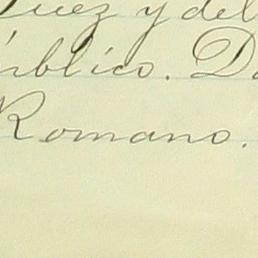 Juez y del
úblico. D
Romano.